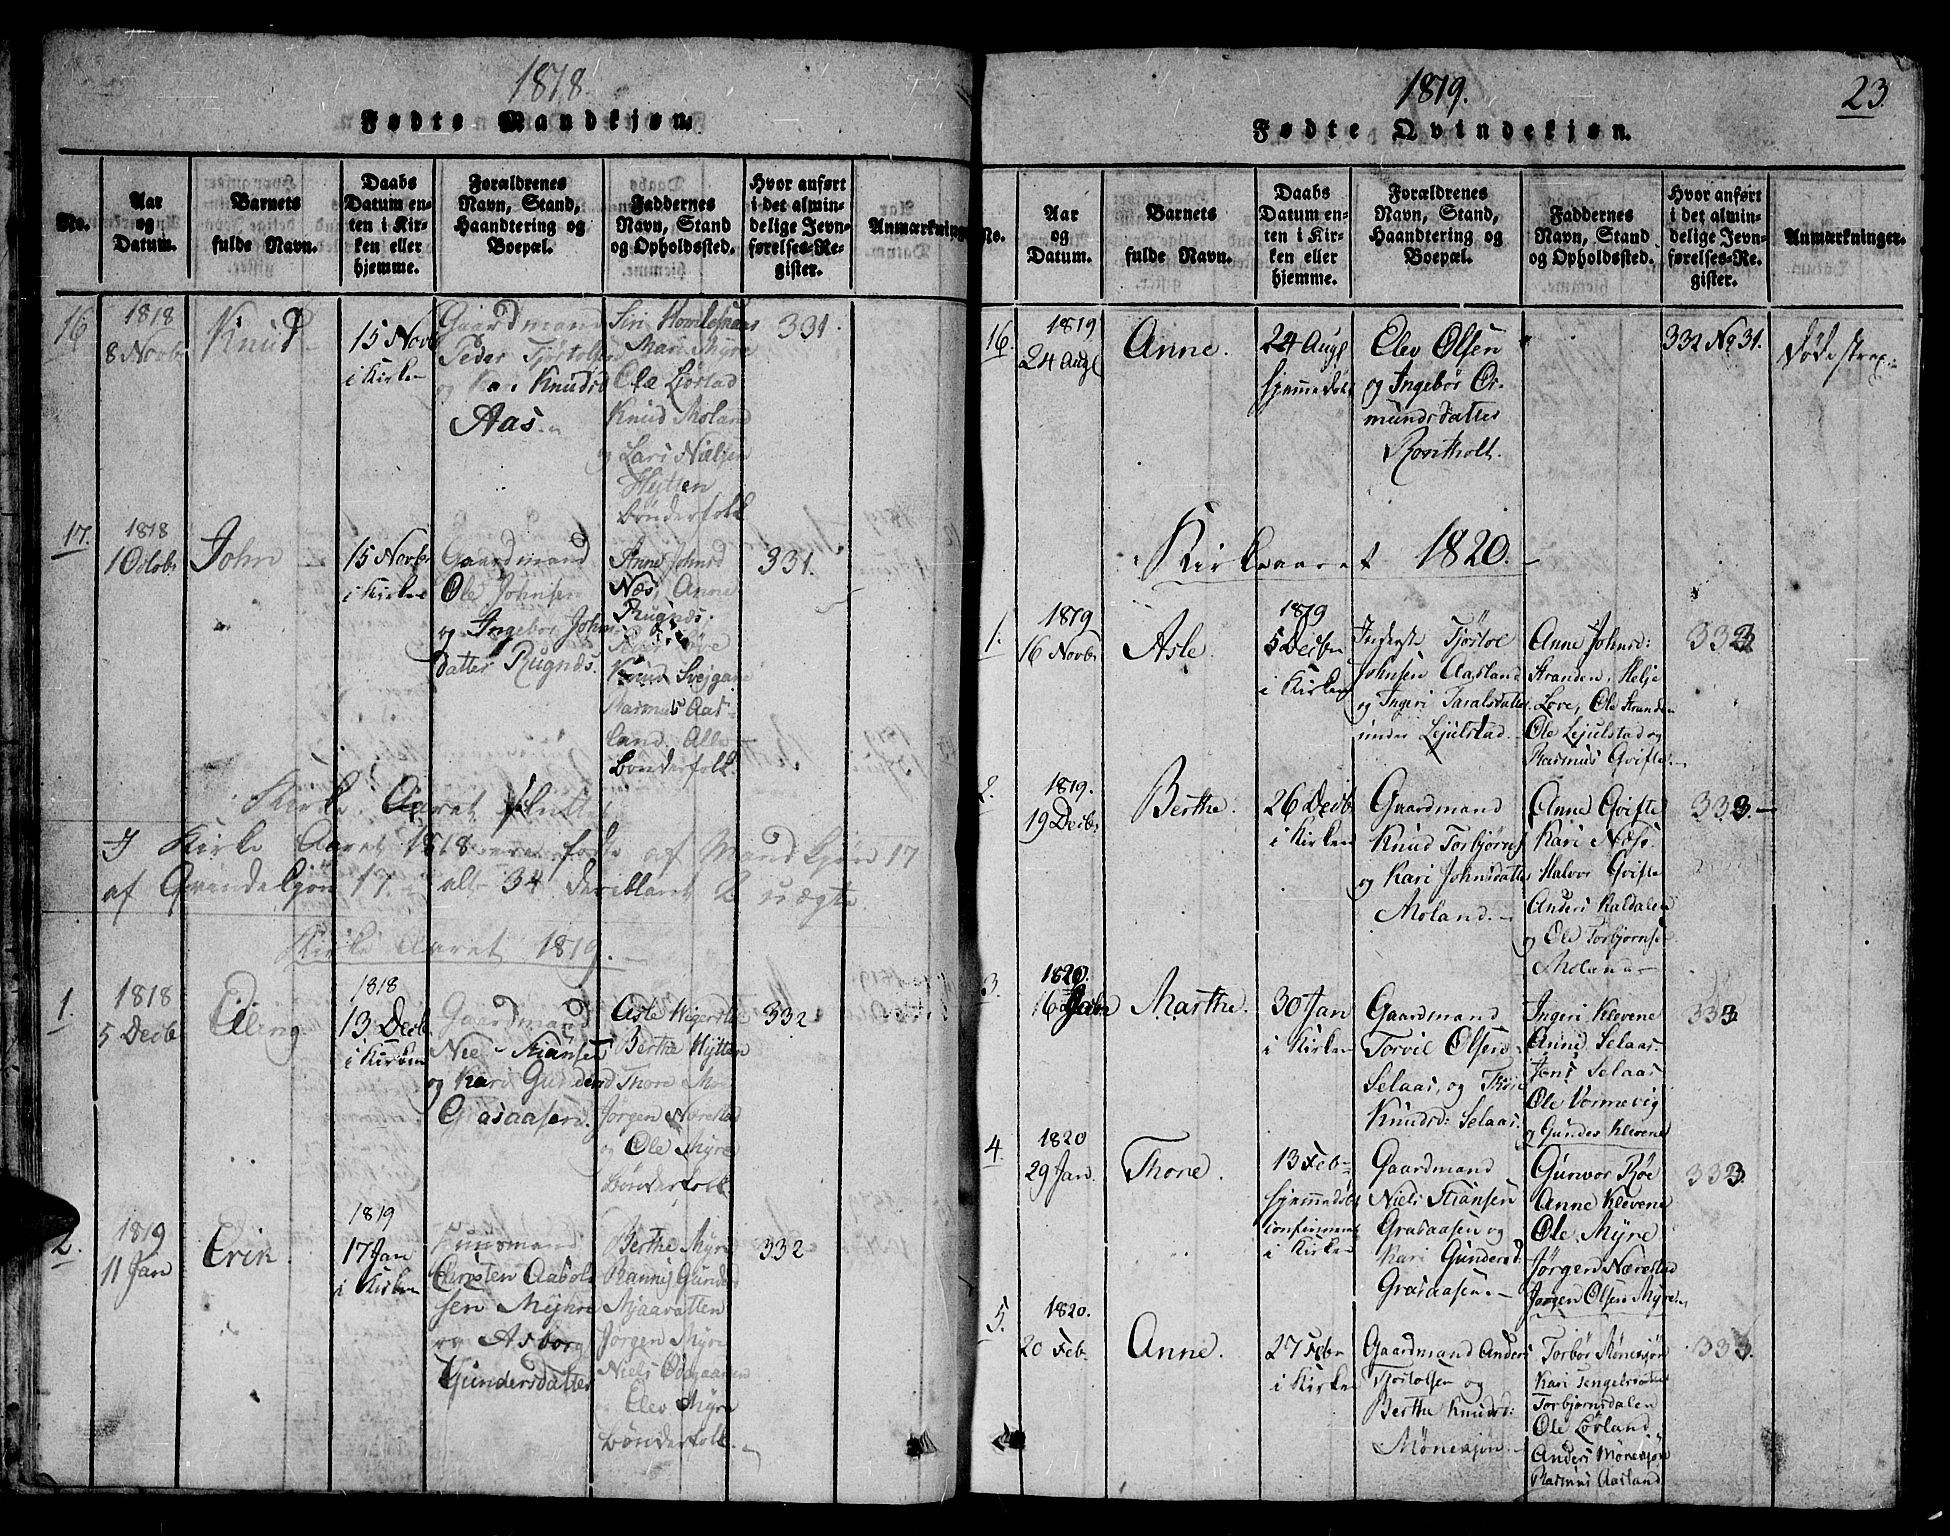 1818.
Fødte Mandkjøn.
No.
Aar
og
Datum.
Barnets
fulde Navn.
Daabs
Datum en-
ten i Kir-
ken eller
hjemme.
Forældrenes
Navn, Stand,
Haandtering og
Boepæl.
Faddernes
Navn, Stand
og Opholdssted.
Hvor anført
i det almin-
delige Jevn-
førelses-Re-
gister.
Anmærkninger
16
1818
8 Novbr
Knud
15 Novb
i Kirken
Gaardmand
Peder Tjøstolsen
og Kari Knudsd
Aas.
Siri
Mari Myre
Ole
Knud Moland
og Lars Nielsen
Hytten
Bønderfolk
331.
17.
1818
1 Octobr
John
15 Novbr
i Kirken
Gaardmand
Ole Johnsen
og Ingebor Johns
datter Rugnds.
Anne Johnsd
Næs, Anne
Rugnds.
Knud Svejgane
Rasmus Aas-
land Alle
Bønderfolk
331.
Kirke Aaret slutter
I Kirke Aaret 1818 ere føde af Mandkjøn 17
af Qvindekjøn 17. alt 34 deriblant 2 uægte
Kirke Aaret 1819.
1.
1818
5 Decbr
Eling
1818
13 Decbr
i Kirken
Gaardmand
Niels Stiansen
og Kari Gundersd
Grasaasen.
Asle
Berthe Hytten
Thore
Jørgen Nærestad
og Ole Myre
Bønderfolk
332
2.
1819
11 Jan
Erik.
1819
17 Jan
i Kirken
Huusmand
Christen Aabols
sen Myhre
og Asborg
Gundersdatter
Berthe Myre
Rannij Gunders
Mjaavatten
Jørgen Myre
Niels Ødegaarden
Elev Myre
Bønderfolk.
332
1819.
23.
Fødte Qvindekjøn.
No.
Aar
og
Datum.
Barnets
fulde Navn.
Daabs
Datum en-
ten i Kir-
ken eller
hjemme.
Forældrenes
Navn, Stand,
Haandtering og
Boepæl.
Faddernes
Navn, Stand
og Opholdssted.
Hvor anført
i det almin-
delige Jevn-
førelses-Re-
gister.
Anmærkninger.
16.
1819
24 Augl
Anne.
24 Augl
hjemmedøbt
Elev Olsen
og Ingebor Or-
mundsdatter
Rontholt.
332 No 31.
Døde strax.
Kirkeaaret 1820.
1.
1819
16 Novbr
Asle.
1819
5 Decbr
i Kirken
Inderste Tjøstol
Johnsen Aasland
og Ingeri Taralsdatter
under Lejulstad.
Anne Johnsd:
Stranden, Helje
Løve, Ole Stranden
Ole Lejulstad og
Rasmus Gvifte.
333
2.
1819.
19 Decbr
Berthe.
26 Decbr
i Kirken
Gaardmand
Knud Torbjørns
og Kari Johnsdatter
Moland.
Anne Gvifte
Kari Næs.
Halvor Gvifte
Anders Kaldalen
og Ole Torbjørnsen
Moland
333.
3.
1820.
16 Jan
Marthe.
30 Jan
i Kirken
Gaardmand
Torvil Olsen
Selaas, og Thore
Knudsd: Selaas.
Ingeri Klevene
Anne Selaas.
Jens Selaas
Ole Vormevig
og Gunder Klevene
333
4.
1820
29 Jan.
Thone.
13 Feb
hjemmedøbt
confirmeret
i Kirken
Gaardmand
Niels Stiansen
Grasaasen og
Kari Gundersd.
Grasaasen.
Gunvor Røe
Anne Klevene
Ole Myre
Jørgen Nærestad
Jørgen Olsen Myre
333.
5.
1820.
20 Feb.
Anne.
27 Febr
i Kirken
Gaardmand Anders
Tjøstolsen og
Berthe Knudsd:
Mønesjøn.
Torbor Mønesjøn
Kari Tengelsdatter
Torbjørnsdalen
Ole Lørland
Anders Mønesjøn
Rasmus Aasland
333.